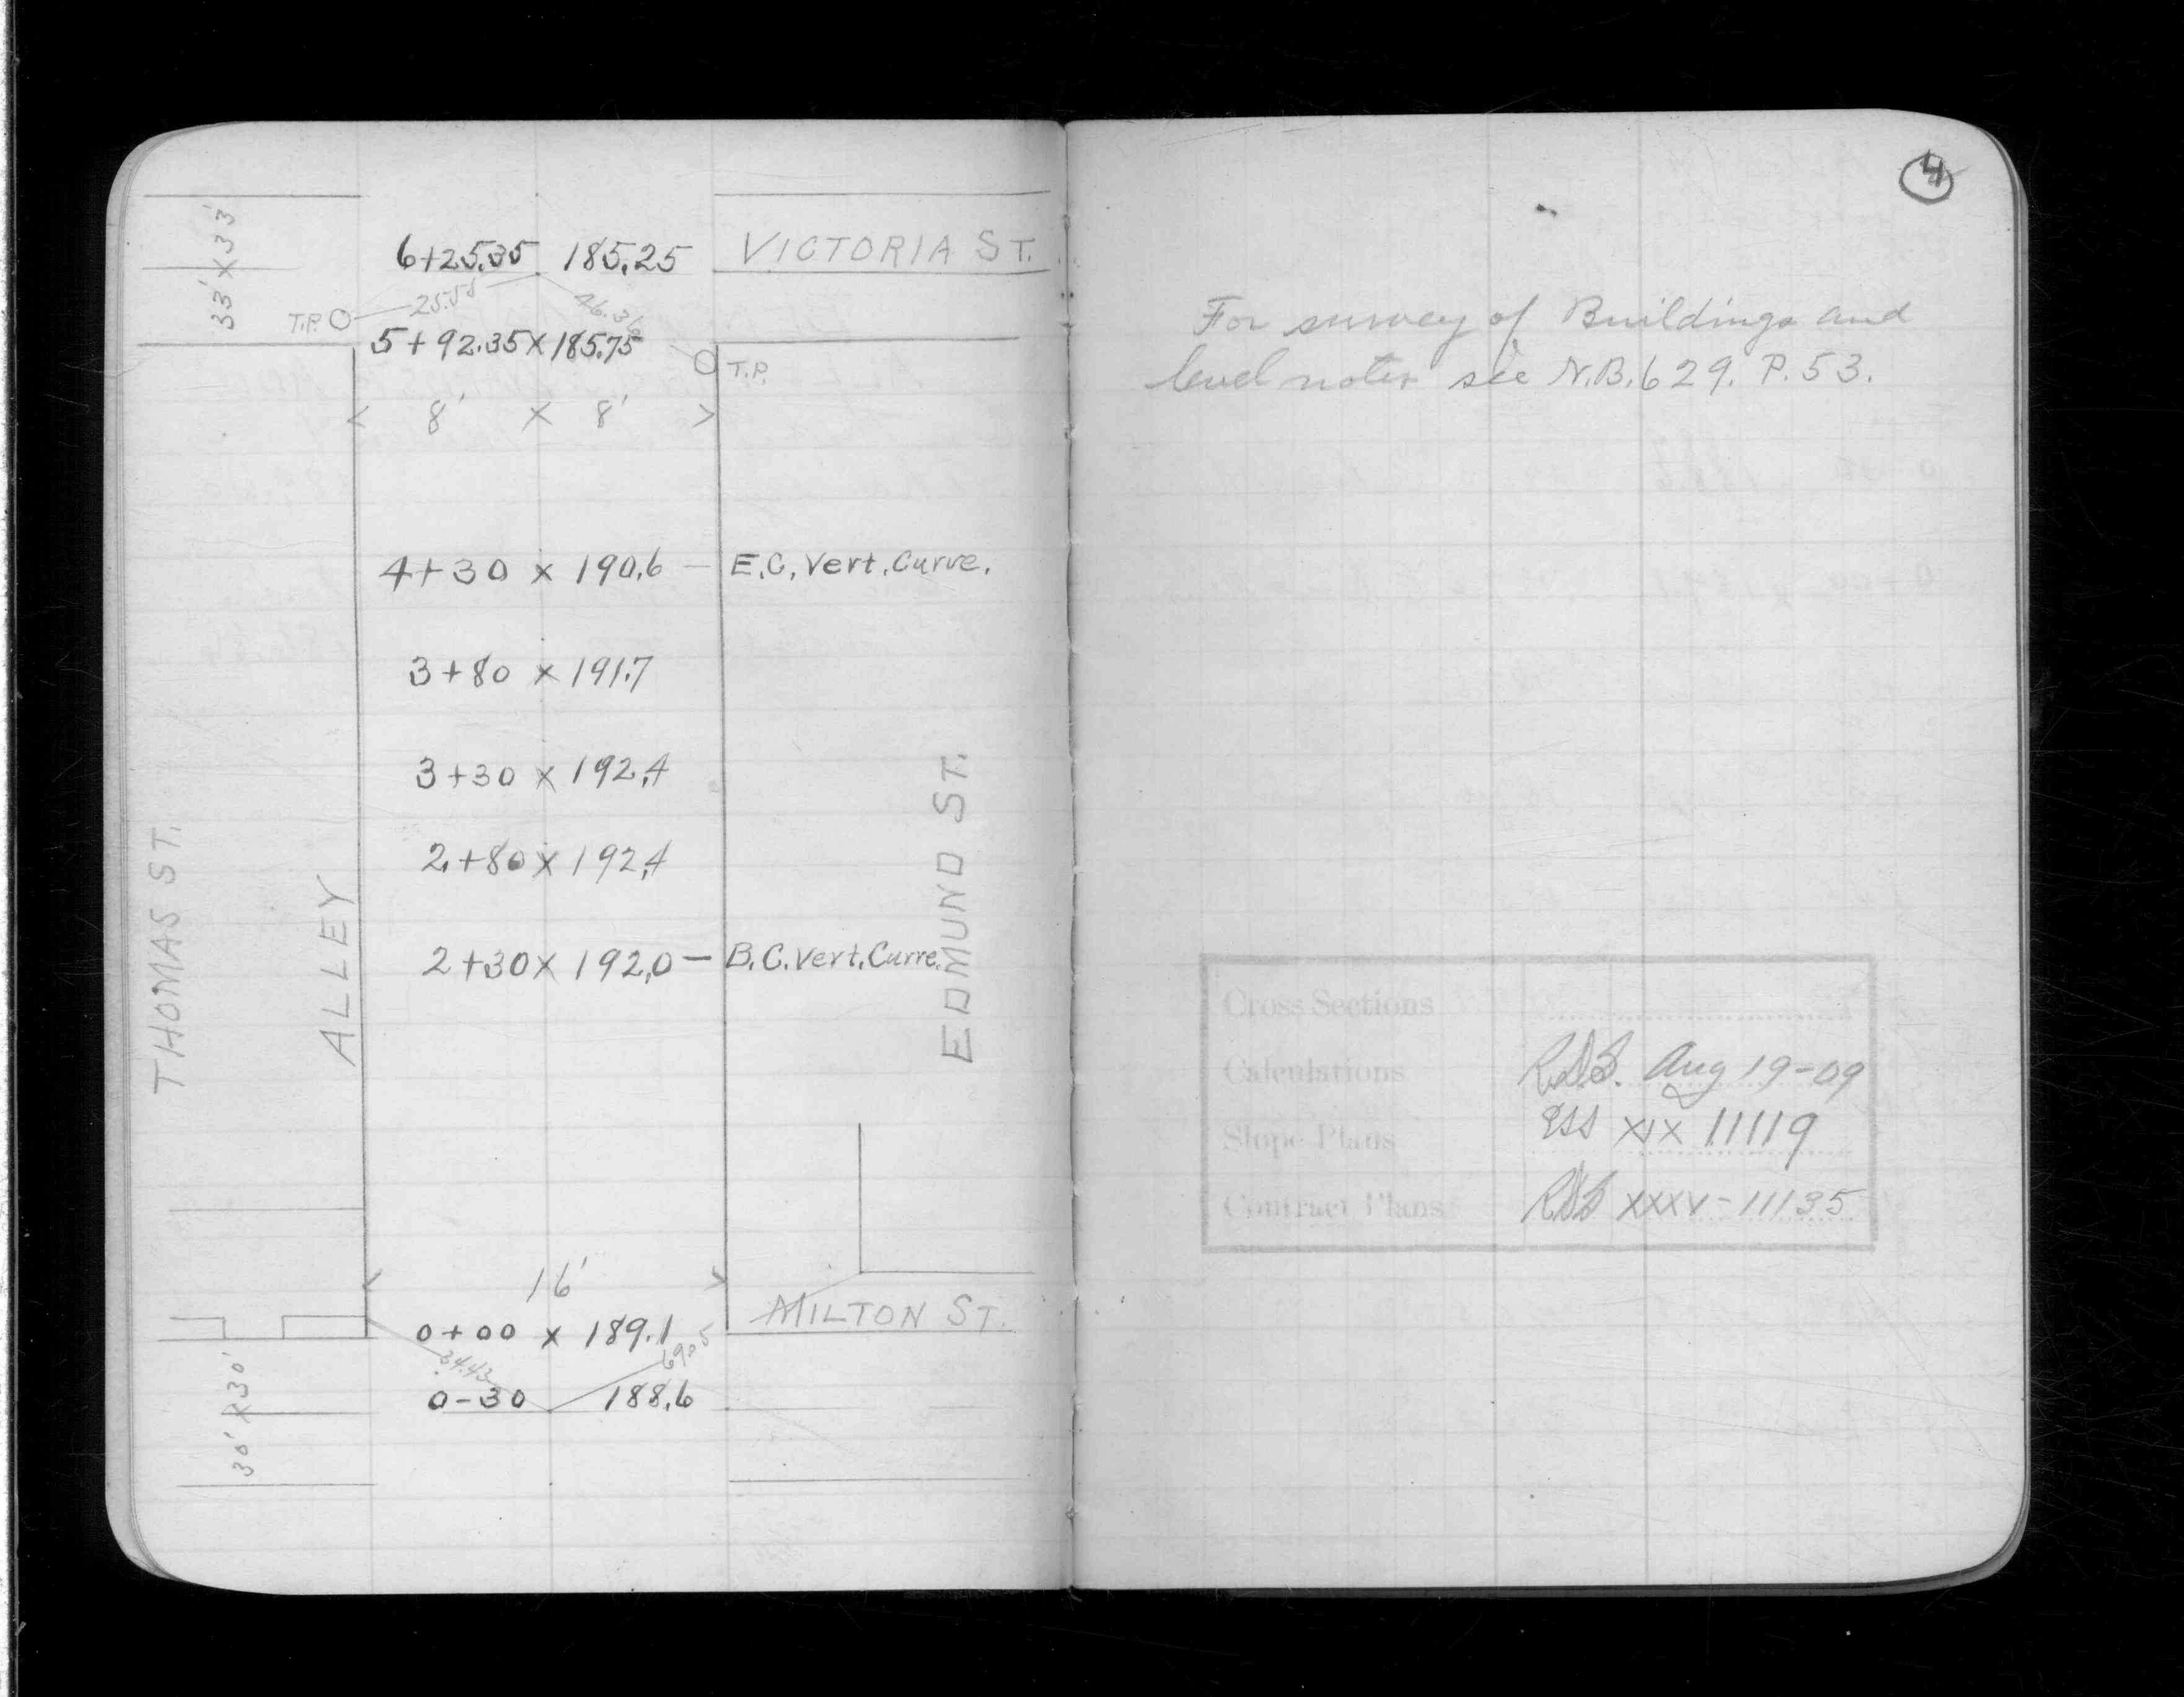 33' x 33'
6+25.35 185.25 VICTORIA ST.
T.P. 25.55 46.36
5+92.35 x 185.75
T.P.
8' x 8'
4+30 x 190.6 - E.C. Vert. Curve.
3+80 x 191.7
3+30 x 192.4
2+80 x 192.4
2+30 x 192.0 - B.C. Vert. Curve.
THOMAS ST.
ALLEY
EDMUND ST.
16'
MILTON ST.
0+00 x 189.1
24.43
0-30 188.6
30' x 30'
4
For survey of Buildings and
level notes see N.B. 629. P. 53.
Cross Sections
Calculations Aug 19-09
Slope Plans XIX 11119
Contract Plans XXXV-11135